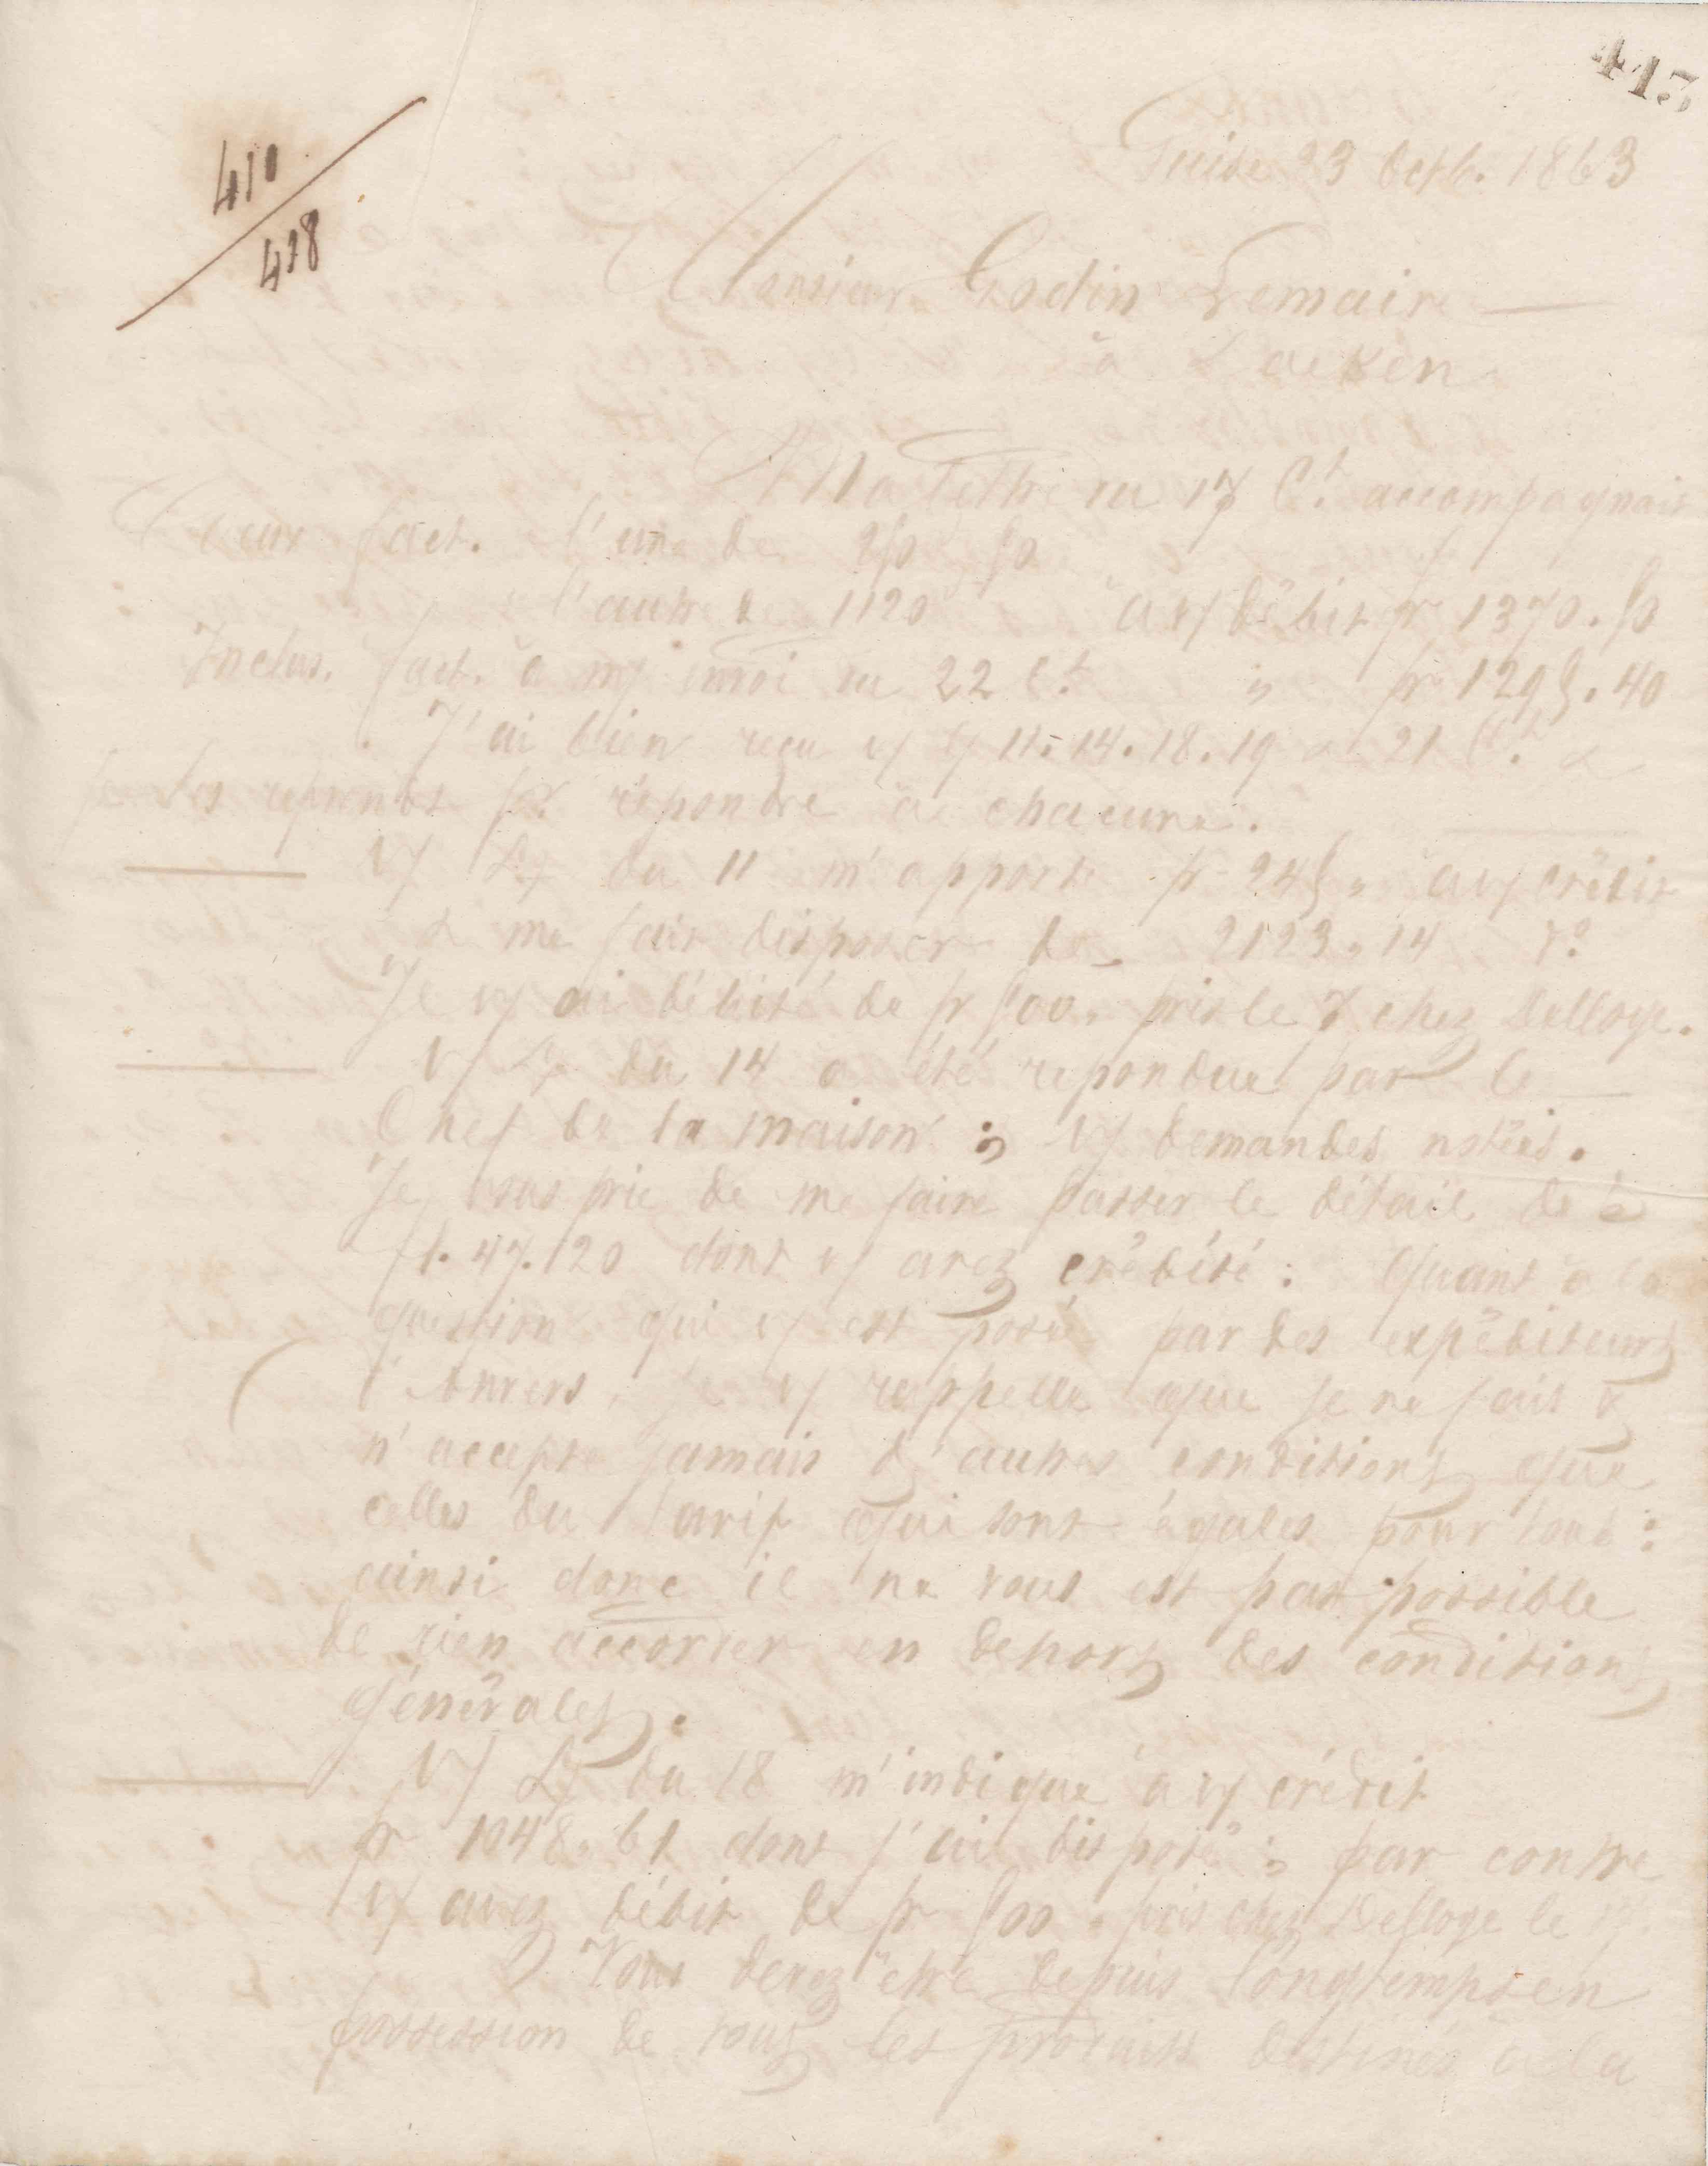 413
410
418
Guise 23 Octb. 1863
Monsieur Godin Lemaire
à Laeken
Ma lettre du 17 Ct. accompagnait
Deux fact. l'une de 250 50
l'autre de 1120 à v/ débit fr 1370.50
Inclus. fact. à m/ envoi du 22 Ct. " fr 1295.40
J'ai bien reçu v/ L/ 11. 14. 18. 19 & 21 Ct. &
je les reprends pr répondre à chacune.
V/ L/ du 11 m'apporte fr 245 " à v/ crédit
& me fait disposer de 2123.14 do
Je v/ ai débité de fr 500. pris le 7 chez Delloye.
V/ L/ du 14 a été repondue par le
Chef de la maison ; v/ demandes notées.
Je vous prie de me faire passer le détail de la
f1.47.120 dont v/ avez crédité : Quant à la
question qui v/ est posée par des expéditeurs
d'Anvers, je v/ rappelle que je ne fais &
n'accepte jamais d'autres conditions que
celles du tarif qui sont égales pour tous :
ainsi donc il ne vous est pas possible
de rien accorder en dehors des conditions
générales.
V/ L/ du 18 m'indique à v/ crédit
fr 1048.61 dont j'ai disposé ; par contre
v/ avez débit de fr 500. pris chez Delloye le
Vous devez être depuis longtemps en
possession de tous les produits destinés à la